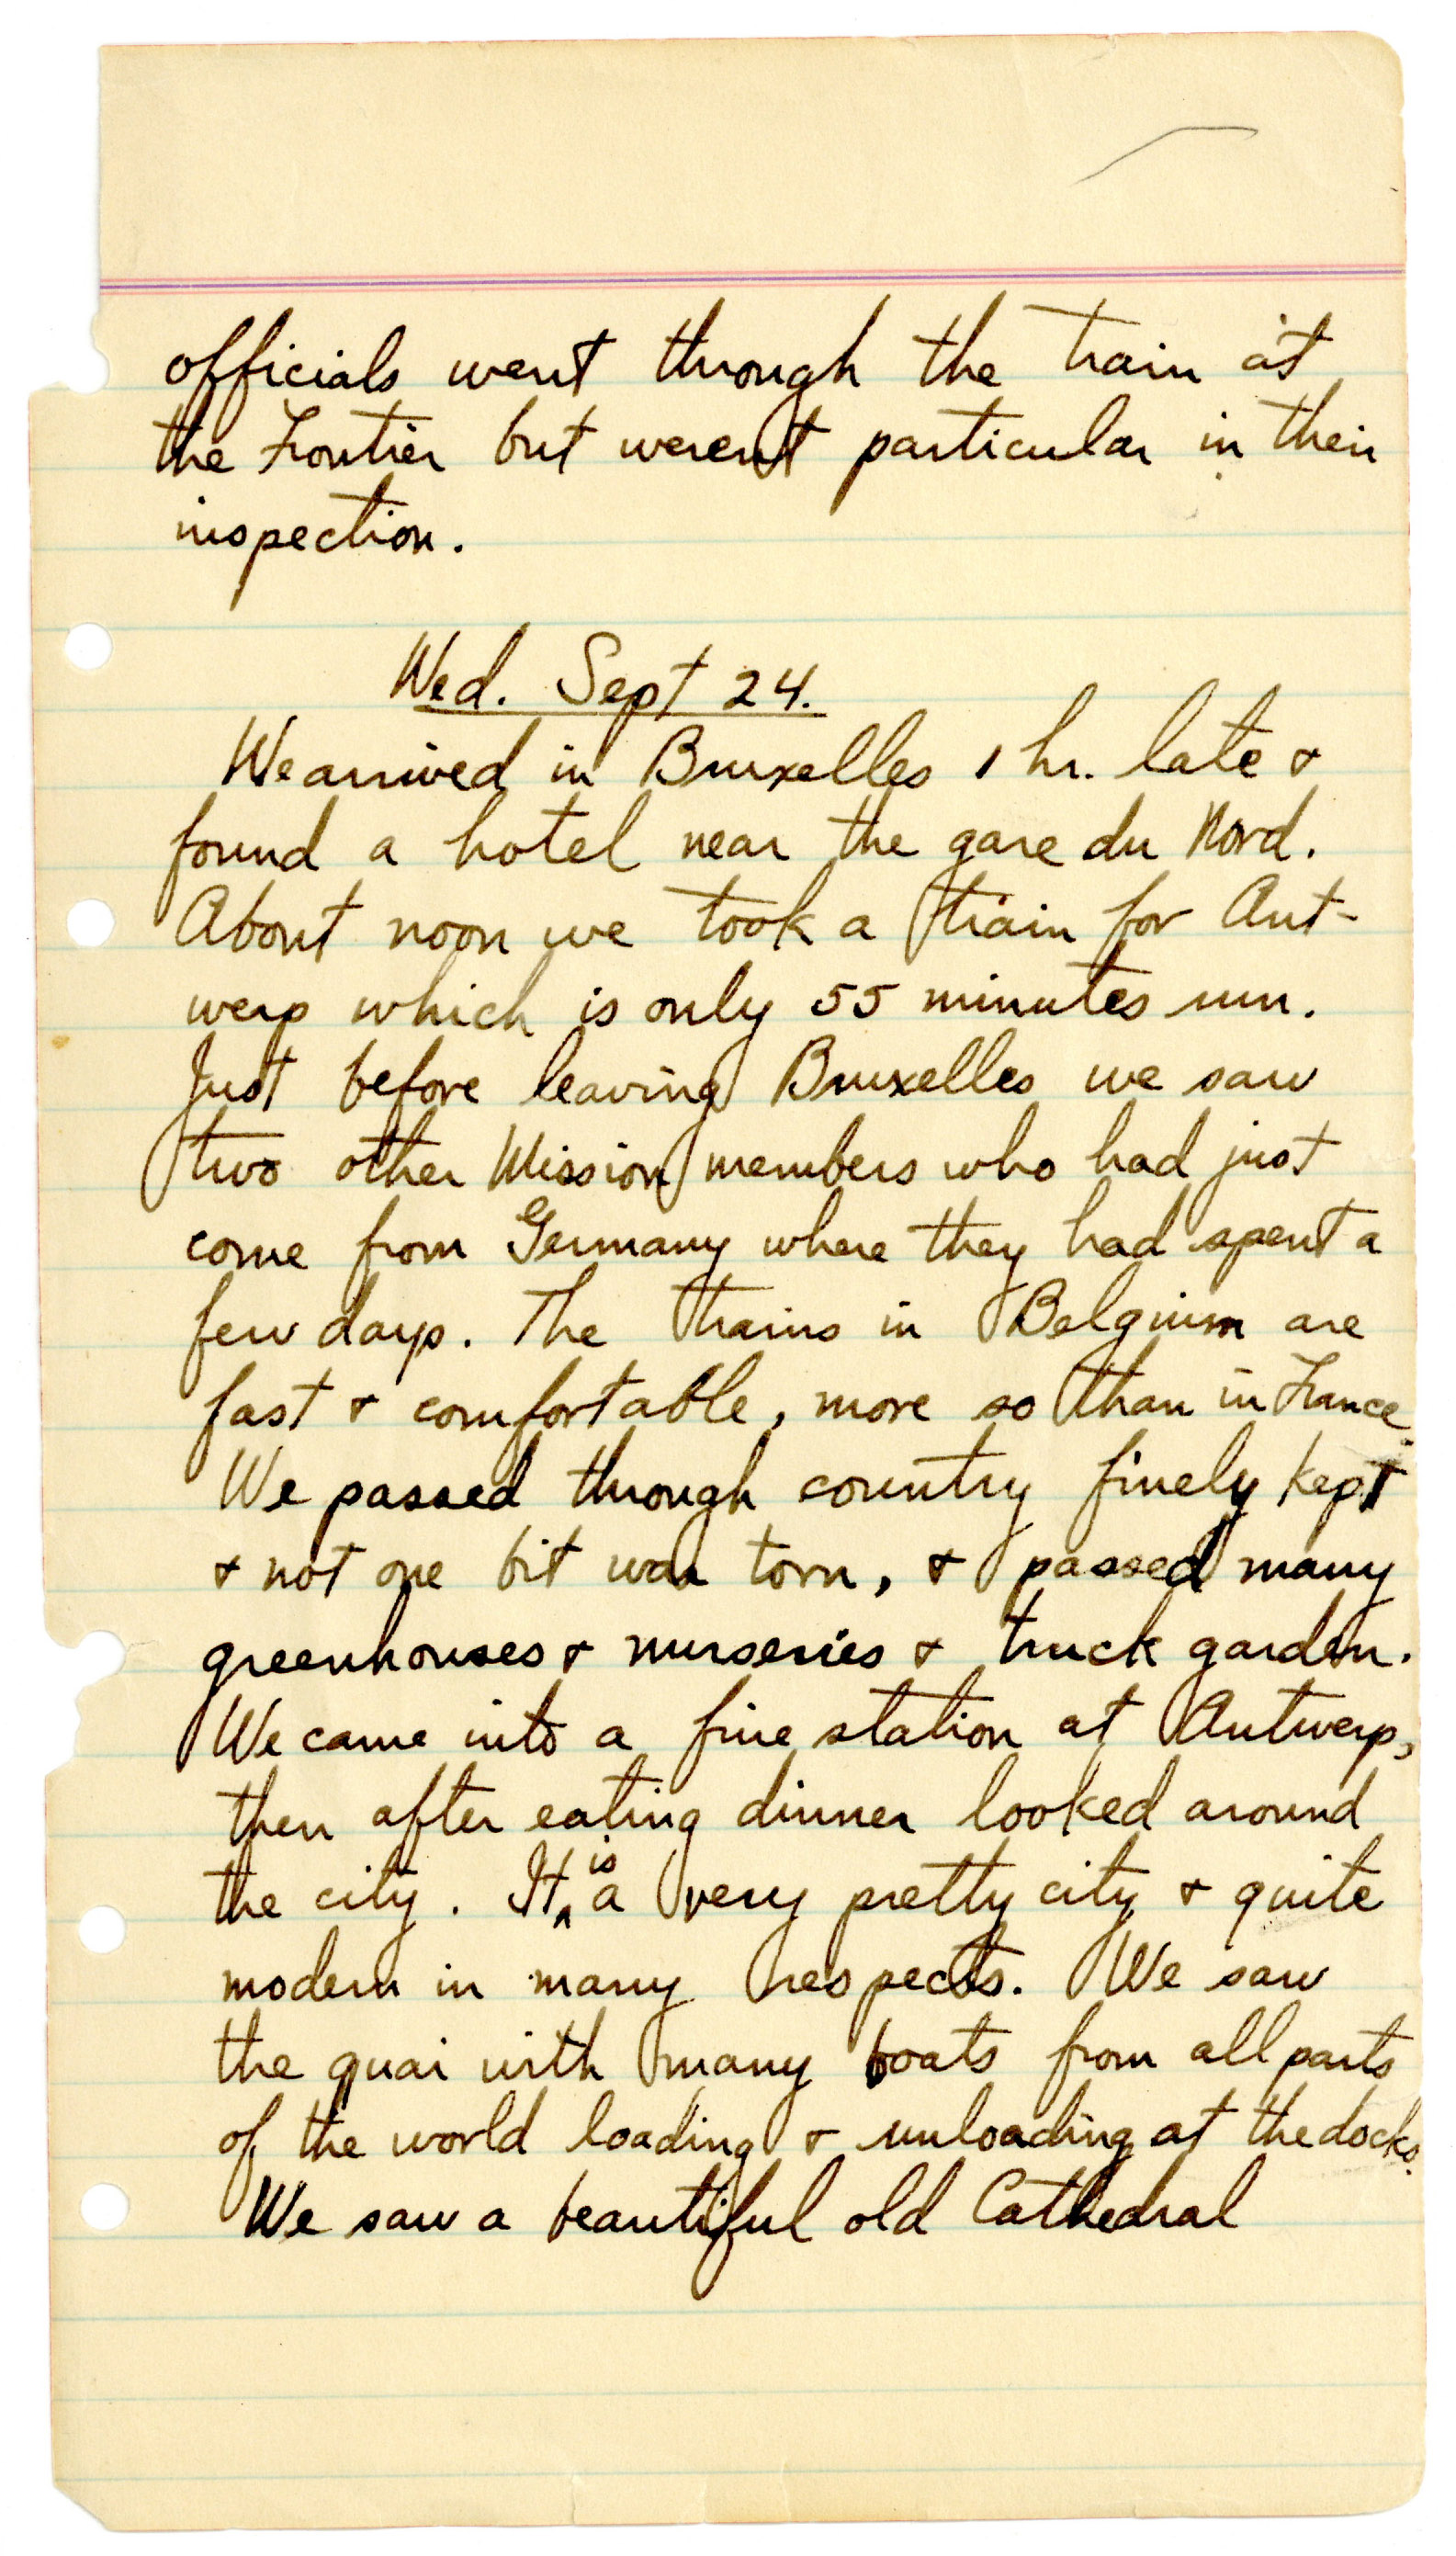 officials went through the train at
the Frontier but weren't particular in their
inspection.
Wed. Sept 24.
We arrived in Bruxelles 1 hr. late &
found a hotel near the gare du Nord.
About noon we took a train for Ant-
werp which is only 55 minutes run.
Just before leaving Bruxelles we saw
two other Mission members who had just
come from Germany where they had spent a
few days. The trains in Belgium are
fast & comfortable, more so than in France.
We passed through country finely kept
& not one bit was torn, & passed many
greenhouses & nurseries & truck garden.
We came into a fine station at Antwerp,
then after eating dinner looked around
the city. It is a very pretty city & quite
modern in many respects. We saw
the quai with many boats from all parts
of the world loading & unloading at the docks.
We saw a beautiful old Cathedral